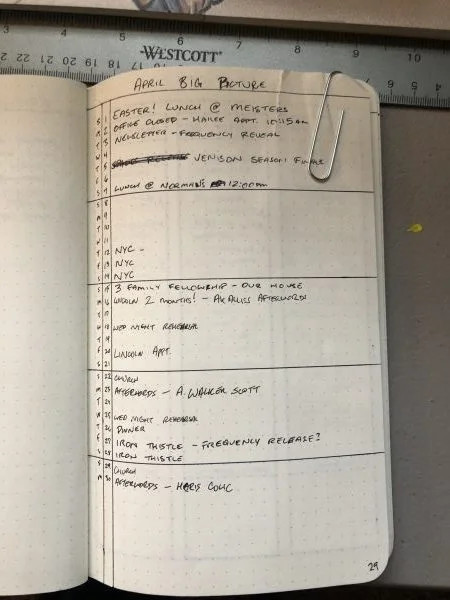 5 6 7 8 9 10
WESTCOTT
APRIL BIG PICTURE
S 1 EASTER! LUNCH @ MEISTERS
M 2 OFFICE CLOSED - HAILEE APPT. 10:15am
T 3 NEWSLETTER - FREQUENCY REVEAL
W 4
T 5 JENISON SEASON FINALE
F 6
S 7 LUNCH @ NORMAN'S 12:00pm
S 8
M 9
T 10
W 11
T 12 NYC -
F 13 NYC
S 14 NYC
S 15 3 FAMILY FELLOWSHIP - OUR HOUSE
M 16 LINCOLN 2 MONTHS! - AFTERWORDS
T 17
W 18 WED NIGHT REHEARSAL
T 19
F 20 LINCOLN APPT.
S 21
S 22 CHURCH
M 23 AFTERWORDS - A. WALKER SCOTT
T 24
W 25 WED NIGHT REHEARSAL
T 26 DINNER
F 27 IRON THISTLE - FREQUENCY RELEASE?
S 28 IRON THISTLE
S 29 CHURCH
M 30 AFTERWORDS - HARIS
29